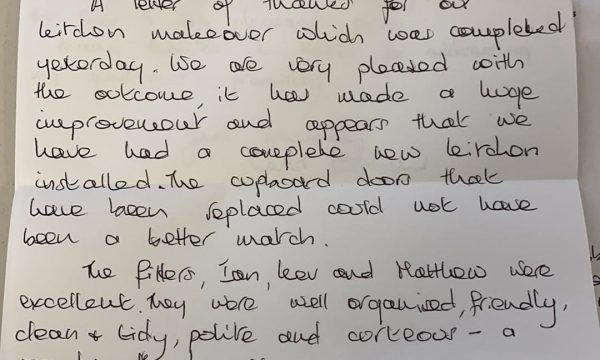 A letter of thanks for our
kitchen makeover which was completed
yesterday. We are very pleased with
the outcome, it has made a huge
improvement and appears that we
have had a complete new kitchen
installed. The cupboard doors that
have been replaced could not have
been a better match.
The fitters, Ian, kev and Matthew were
excellent. They were well organised, friendly,
clean & tidy, polite and corteous - a